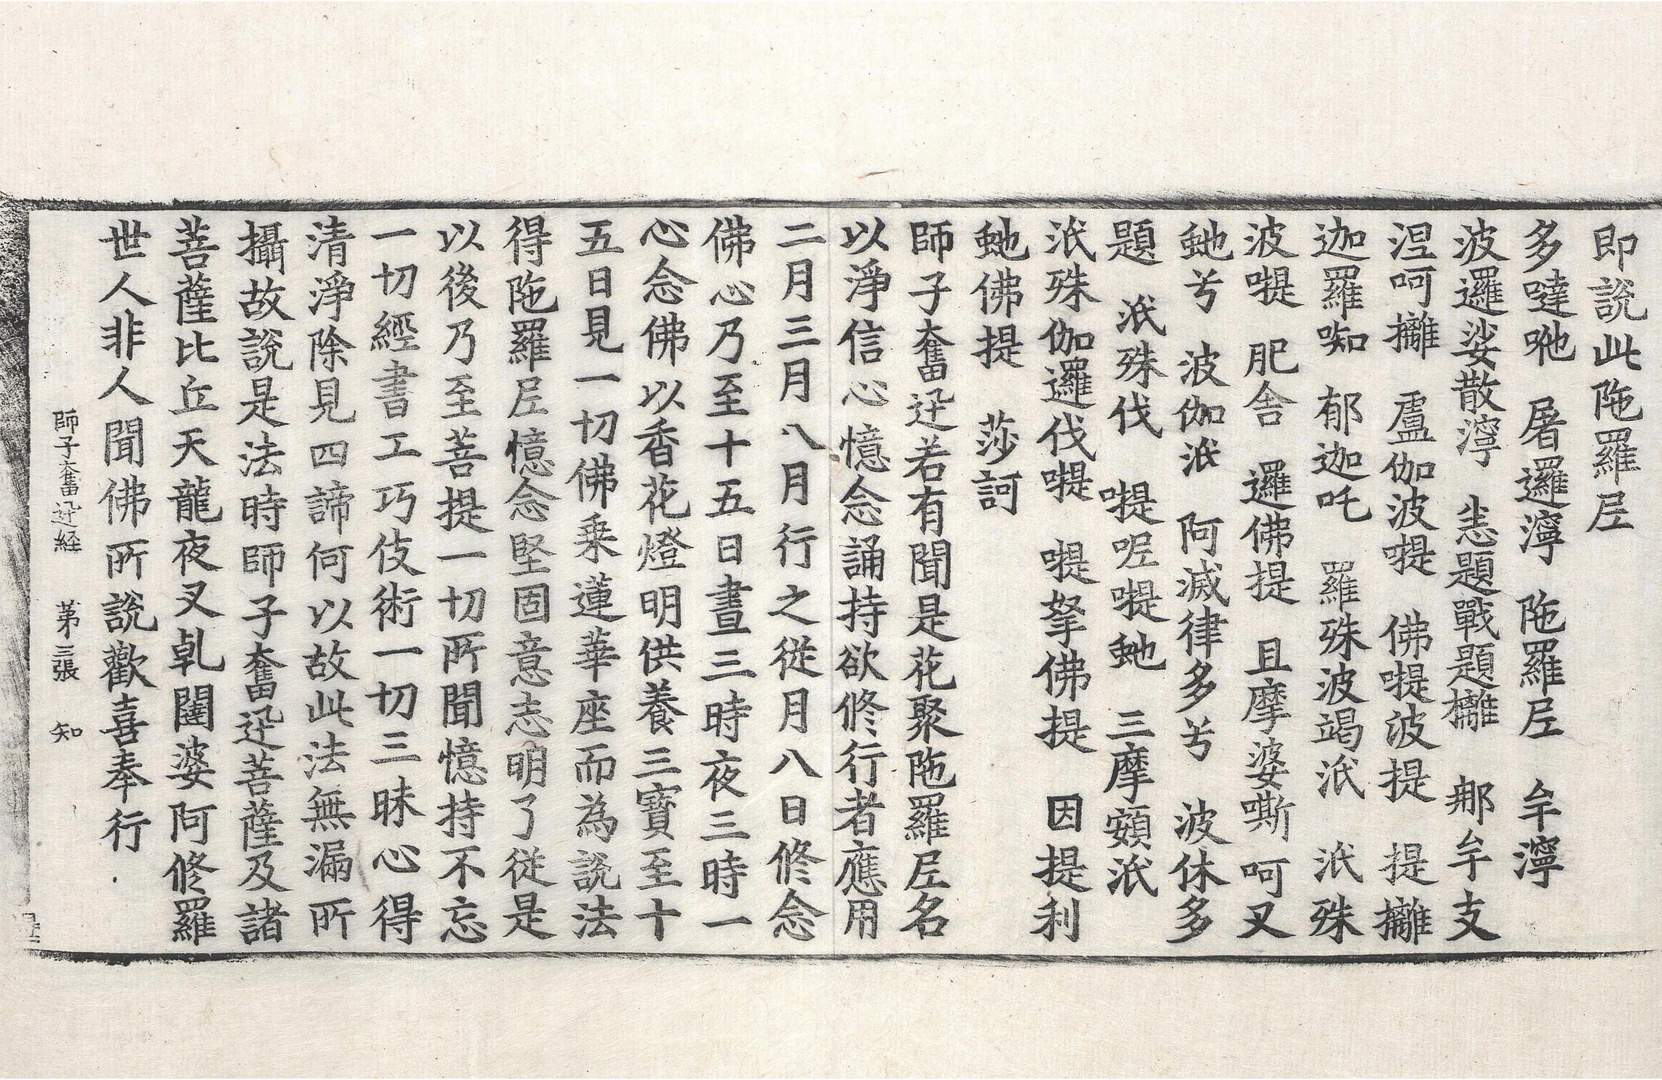 即說此陁羅𡰱
多噠吔 屠邏濘 陁羅𡰱 牟濘
波邏娑散濘 恚題戰題㰚 那牟支
涅呵㰚 盧伽波㖷 佛㖷波提 提㰚
迦羅𠯗 郁迦吒 羅殊波竭汦 汦殊
波㖷 肥舍 邏佛提 且摩婆嘶 呵叉
虵兮 波伽汦 阿滅律多兮 波休多
題 汦殊伐 㖷呢㖷虵 三摩頞汦
汦殊伽邏伐㖷 㖷拏佛提 因提利
虵佛提 莎訶
師子奮迅若有聞是花聚陁羅𡰱名
以淨信心憶念誦持欲修行者應用
二月三月八月行之從月八日修念
佛心乃至十五日晝三時夜三時一
心念佛以香花燈明供養三寶至十
五日見一切佛乗蓮華座而為說法
得陁羅𡰱憶念堅固意志明了從是
以後乃至菩提一切所聞憶持不忘
一切經書工巧伎術一切三昧心得
清淨除見四諦何以故此法無漏所
攝故說是法時師子奮迅菩薩及諸
菩薩比丘天龍夜叉乹闥婆阿修羅
世人非人聞佛所說歡喜奉行
師子奮迅経 第三張 知